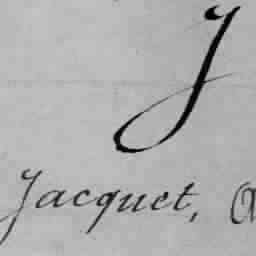 J
Jacquet,